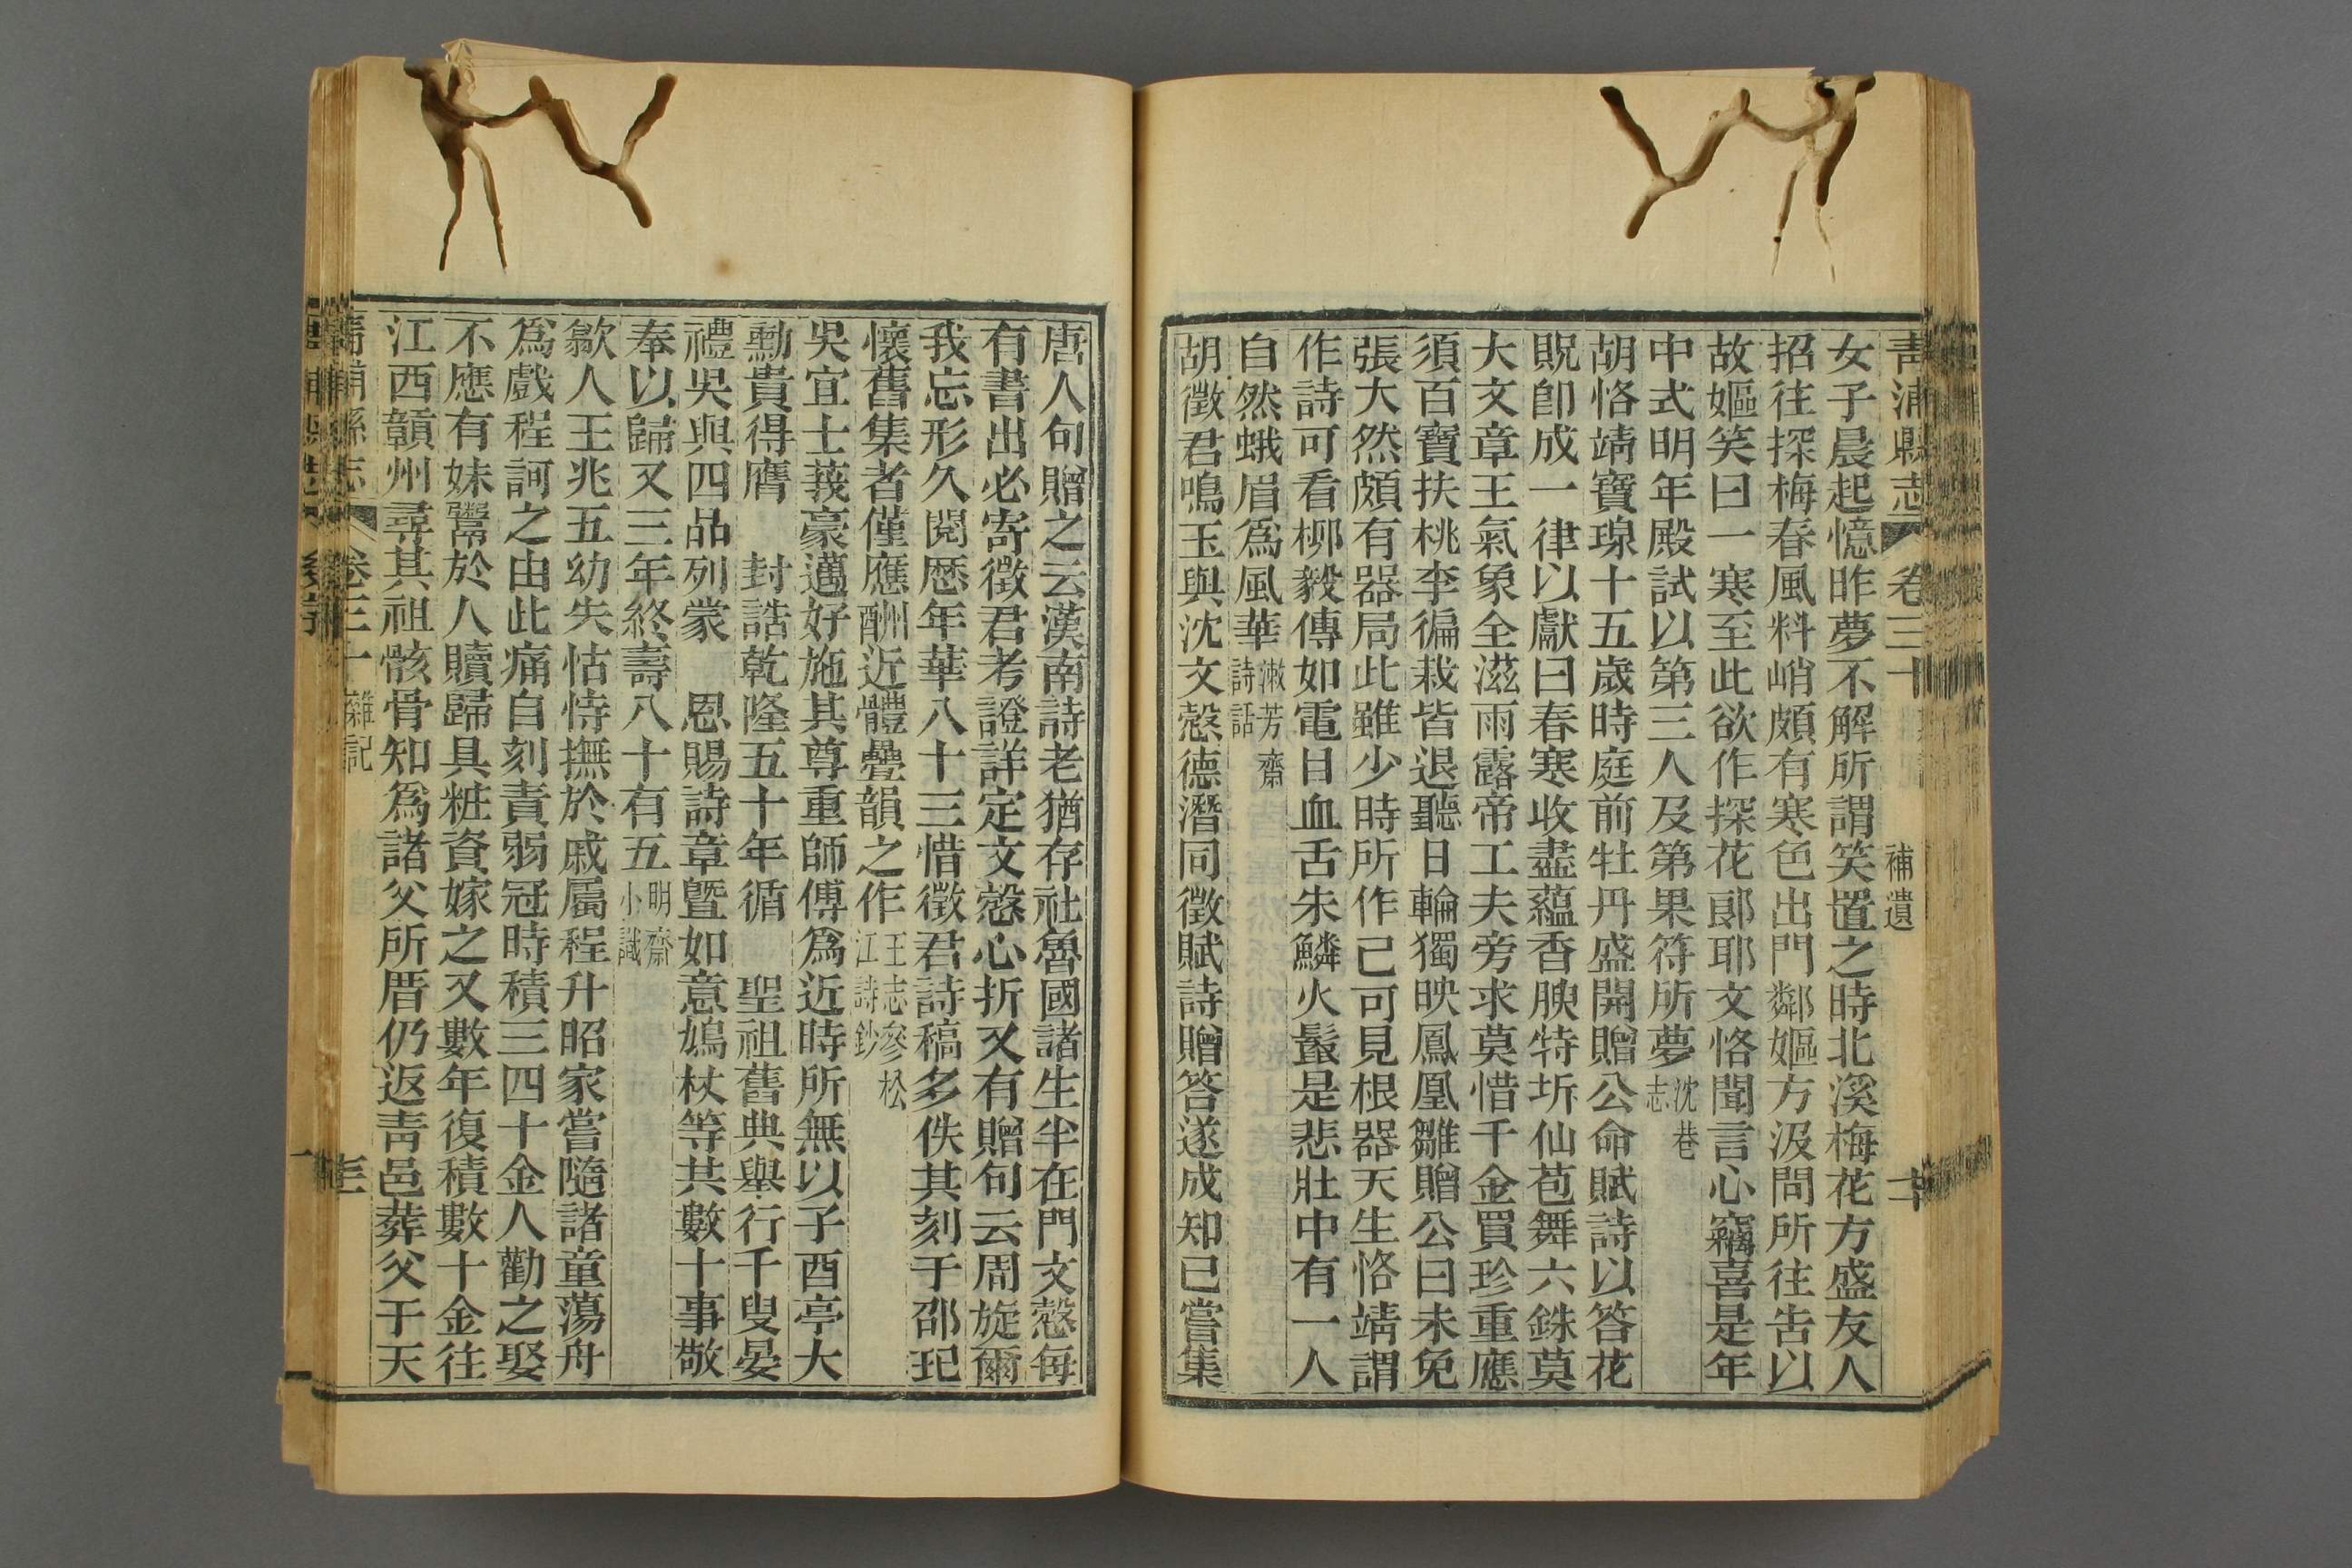 青浦縣志 卷三十 補遺
女子晨起憶昨夢不解所謂笑置之時北溪梅花方盛友人
招往探梅春風料峭頗有寒色出門鄰嫗方汲問所往吿以
故嫗笑曰一寒至此欲作探花郎耶文恪聞言心竊喜是年
中式明年殿試以第三人及第果符所夢沈巷志
胡恪靖寶瑔十五歲時庭前牡丹盛開贈公命賦詩以答花
貺卽成一律以獻曰春寒收盡蘊香腴特坼仙苞舞六銖莫
大文章王氣象全滋雨露帝工夫旁求莫惜千金買珍重應
須百寶扶桃李徧栽皆退聽日輪獨映鳳凰雛贈公曰未免
張大然頗有器局此雖少時所作已可見根器天生恪靖謂
作詩可看柳毅傳如電目血舌朱鱗火鬣是悲壯中有一人
自然蛾眉爲風華漱芳齋詩話
胡徵君鳴玉與沈文慤德潛同徵賦詩贈答遂成知已嘗集
唐人句贈之云漢南詩老猶存社魯國諸生半在門文慤每
有書出必寄徵君考證詳定文慤心折又有贈句云周旋爾
我忘形久閱歷年華八十三惜徵君詩稿多佚其刻于邵玘
懷舊集者僅應酬近體疊韻之作王志參松江詩鈔
吳宜士莪豪邁好施其尊重師傅爲近時所無以子酉亭大
勳貴得膺 封誥乾隆五十年循 聖祖舊典舉行千叟晏
禮吳與四品列蒙 恩賜詩章曁如意鳩杖等共數十事敬
奉以歸又三年終壽八十有五明齋小識
歙人王兆五幼失怙恃撫於戚屬程升昭家嘗隨諸童蕩舟
爲戲程訶之由此痛自刻責弱冠時積三四十金人勸之娶
不應有妹鬻於人贖歸具粧資嫁之又數年復積數十金往
江西贛州尋其祖骸骨知爲諸父所厝仍返靑邑葬父于天
靑浦縣志 卷三十 雜記